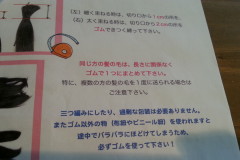 (左) 細く束ねる時は、切り口から1cmの所を、
(右) 太く束ねる時は、切り口から2cmの所を
ゴムできつく縛って下さい。
同じ方の髪の毛は、長さに関係なく
ゴムで1つにまとめて下さい。
特に、複数の方の髪の毛を1度に送られる場合は
ご注意下さい。
三つ編みにしたり、過剰な包装は必要ありません。
またゴム以外の物（布紐やビニール紐）を使われますと
途中でバラバラにほどけてしまうため、
必ずゴムを使って下さい！